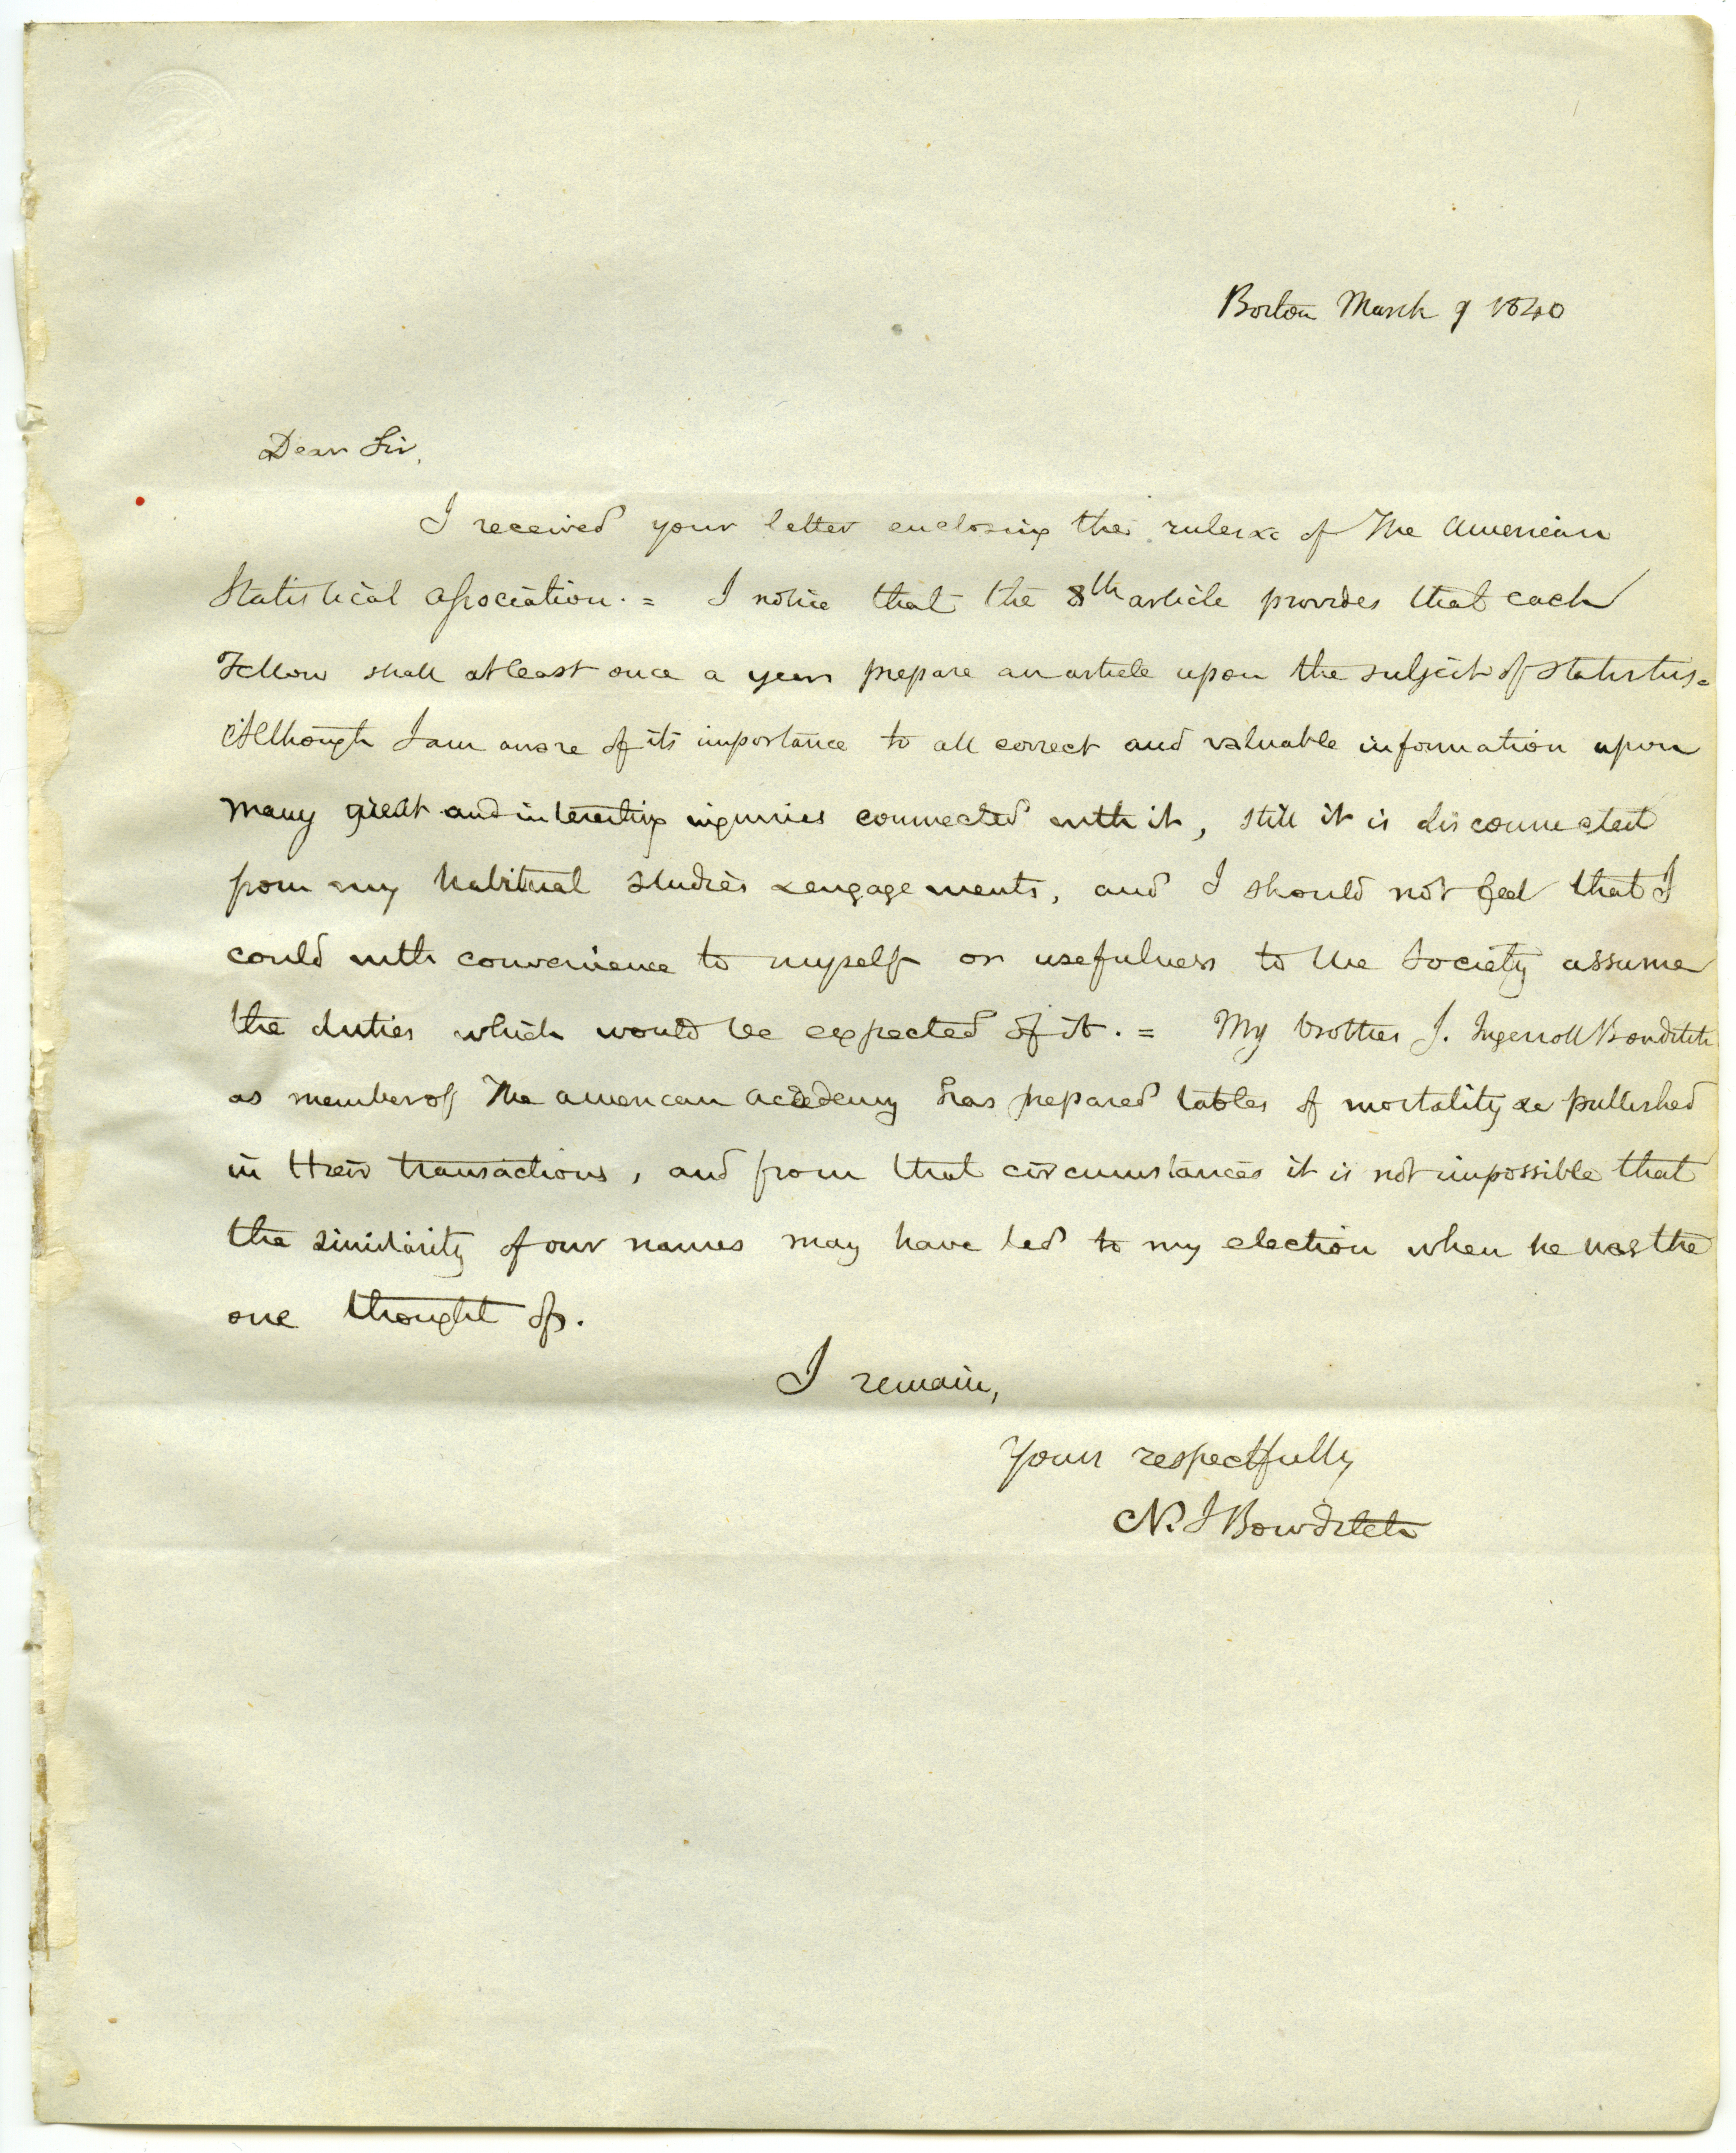 Boston March 9 1840
Dear Sir,
I received your letter enclosing the rules &c of The American
Statistical Association. = I notice that the 8th article provides that each
Fellow shall at least once a year prepare an article upon the subject of statistics.=
Although I am aware of its importance to all correct and valuable information upon
many great and interesting inquiries connected with it, still it is disconnected
from my habitual studies & engagements, and I should not feel that I
could with convenience to myself or usefulness to the Society assume
the duties which would be expected of it. = My brother J. Ingersoll Bowditch
as member of The American Academy has prepared tables of mortality &c published
in their transactions, and from that circumstances it is not impossible that
the similarity of our names may have led to my election when he was the
one thought of.
I remain,
Yours respectfully
N. I Bowditch